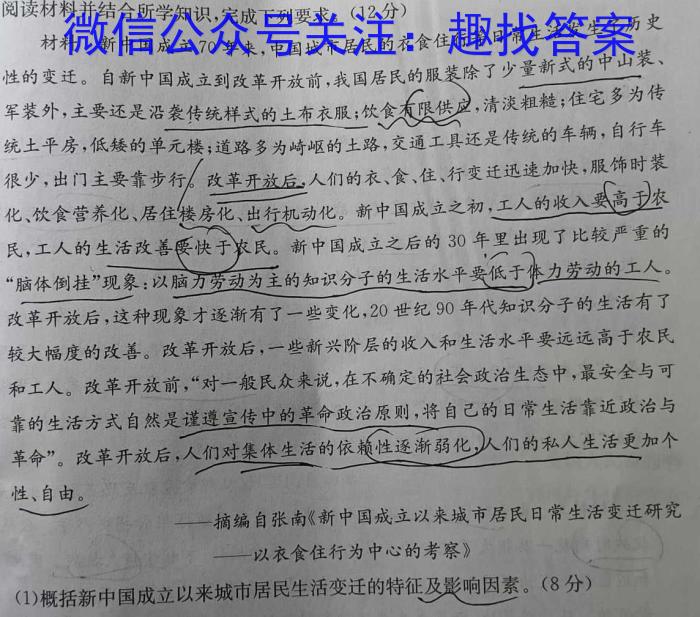 阅读材料并结合所学知识,完成下列要求。(12分)
微信公众号关注:趣找答案
材料 新中国成立70年来,中国城市居民的衣食住行等日常生活发生了历史
性的变迁。自新中国成立到改革开放前,我国居民的服装除了少量新式的中山装、
军装外,主要还是沿袭传统样式的土布衣服;饮食有限供应,清淡粗糙;住宅多为传
统土平房,低矮的单元楼;道路多为崎岖的土路,交通工具还是传统的车辆,自行车
很少,出门主要靠步行。改革开放后,人们的衣、食、住、行变迁迅速加快,服饰时装
化、饮食营养化、居住楼房化、出行机动化。新中国成立之初,工人的收入要高于农
民,工人的生活改善要快于农民。新中国成立之后的30年里出现了比较严重的
“脑体倒挂”现象:以脑力劳动为主的知识分子的生活水平要低于体力劳动的工人。
改革开放后,这种现象才逐渐有了一些变化,20世纪90年代知识分子的生活有了
较大幅度的改善。改革开放后,一些新兴阶层的收入和生活水平要远远高于农民
和工人。改革开放前,“对一般民众来说,在不确定的社会政治生态中,最安全与可
靠的生活方式自然是谨遵宣传中的革命政治原则,将自己的日常生活靠近政治与
革命”。改革开放后,人们对集体生活的依赖性逐渐弱化,人们的私人生活更加个
性、自由。
——摘编自张南《新中国成立以来城市居民日常生活变迁研究
——以衣食住行为中心的考察》
(1)概括新中国成立以来城市居民生活变迁的特征及影响因素。(8分)